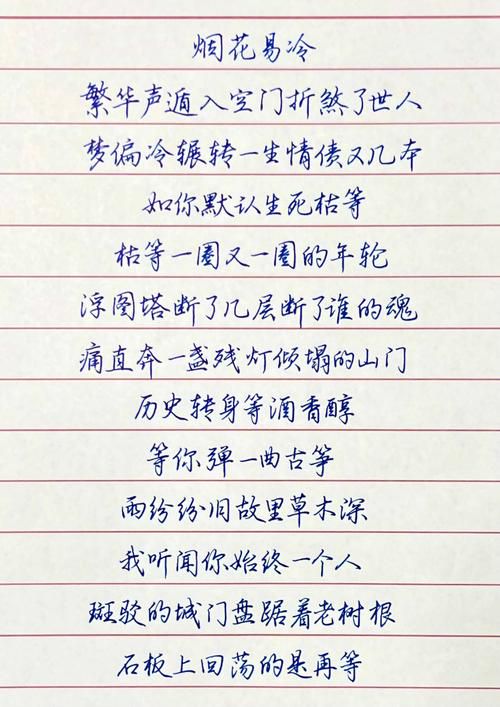 烟花易冷
繁华声遁入空门折煞了世人
梦偏冷辗转一生情债又几本
如你默认生死枯等
枯等一圈又一圈的年轮
浮图塔断了几层断了谁的魂
痛直奔一盏残灯倾塌的山门
历史转身等酒香醇
等你弹一曲古筝
雨纷纷旧故里草木深
我听闻你始终一个人
斑驳的城门盘踞着老树根
石板上回荡的是再等